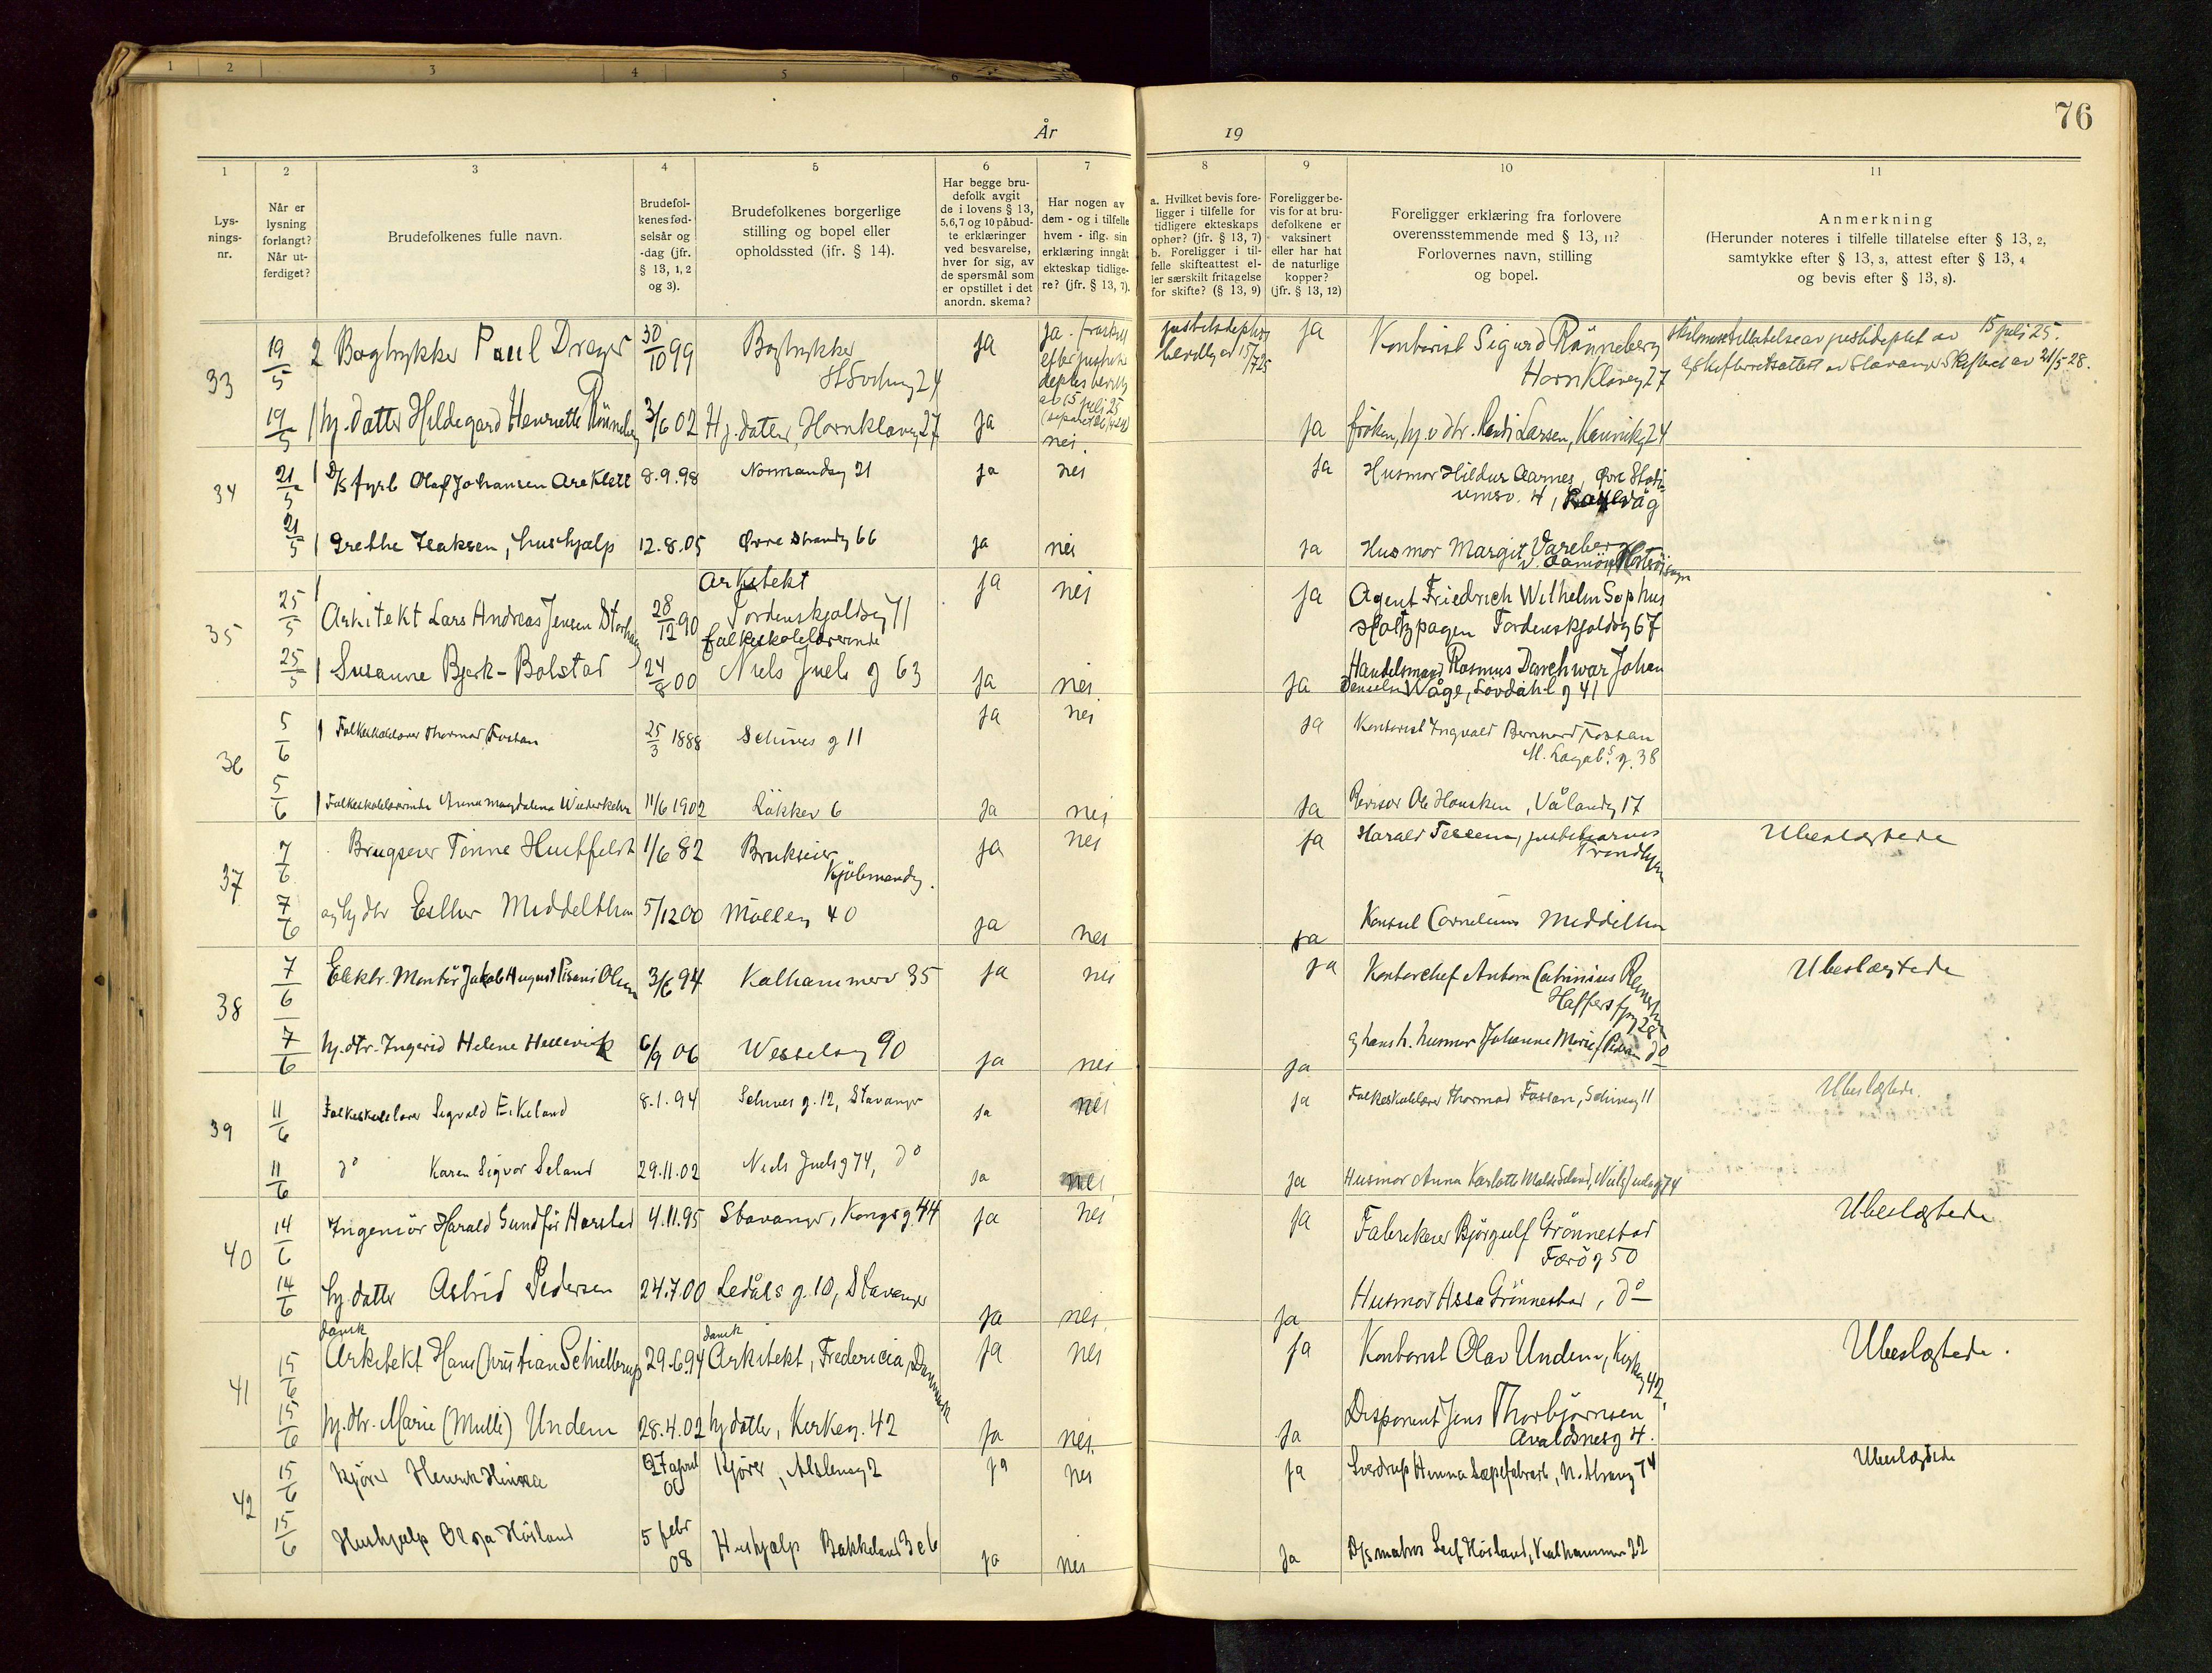 1 2 3 4 5 6
År 19
76
1 2 3 4 5 6 7 8 9 10 11
Lys-
nings-
nr.
Når er
lysning
forlangt?
Når ut-
ferdiget?
Brudefolkenes fulle navn.
Brudefol-
kenes fød-
selsår og
-dag (jfr.
§ 13, 1, 2
og 3).
Brudefolkenes borgerlige
stilling og bopel eller
opholdssted (jfr. § 14).
Har begge bru-
defolk avgit
de i lovens § 13,
5,6,7 og 10 påbud-
te erklæringer
ved besvarelse,
hver for sig, av
de spørsmål som
er opstillet i det
anordn. skema?
Har nogen av
dem - og i tilfelle
hvem - iflg. sin
erklæring inngåt
ekteskap tidlige-
re? (jfr. § 13, 7).
a. Hvilket bevis fore-
ligger i tilfelle for
tidligere ekteskaps
ophør? (jfr. § 13, 7)
b. Foreligger i til-
felle skifteattest el-
ler særskilt fritagelse
for skifte? (§ 13, 9)
Foreligger be-
vis for at bru-
defolkene er
vaksinert
eller har hat
de naturlige
kopper?
(jfr. § 13, 12)
Foreligger erklæring fra forlovere
overensstemmende med § 13, 11?
Forlovernes navn, stilling
og bopel.
Anmerkning
(Herunder noteres i tilfelle tillatelse efter § 13, 2,
samtykke efter § 13, 3, attest efter § 13, 4
og bevis efter § 13, 8).
33 19/5 2 Bogtrykker Paul Dreyer 30/10 99 Bogtrykker
24 ja ja
15 juli 25
ja Kontorist Sigurd Rönneberg
Hornkloveg 27
av 15 juli 25.
Stavanger av 21/5-28.
19/5 1 hj. datter Hildegard Henriette Rönneberg 3/6 02 Hj. datter, Hornkloveg 27 ja nei. ja fröken, hj.v. dtr. Randi Larsen, Kannikg 24
34 21/5 1 D/S fyrb Olaf Johansen Areklett 8.9.98 Normandsg 21 ja nei ja Husmor Hildur Aarnes, Øvre Stadi-
umsv. 4,
21/5 1 Grethe Isaksen, hushjælp 12.8.05 Øvre Strandg 66 ja nei ja Husmor Margit Vareberg
35 25/5 1 Arkitekt Lars Andreas Jensen Storhaug 28/12 90 Arkitekt
Tordenskjoldsg 71 ja nei ja Agent Friedrich Wilhelm Sophus
Holtzpagen Tordenskjoldsg 67
25/5 1 Susanne Bjerk-Bolstad 24/8 00 folkeskolelærerinde
Niels Juels g 63 ja nei. ja Handelsmand Rasmus Johan
Våge, Lövdahl g 41
36 5/6 1 Folkeskolelærer Thormod Fossan 25/3 1888 Schives g 11 ja nei ja Kontorist Ingvald Bernhard Fossan
M. Lagabs. g. 38
5/6 1 Folkeskolelærerinde Anna Magdalena Wiederkehr 11/6 1902 Läkkev 6 ja nei ja Revisor Ole Hausken, Vålandsg 17
37 7/6 Brugseier Tönne Huitfeldt 1/6 82 Brukseier
Kjölvmandsg. ja nei ja Harald Tessem,
Trondhjem Ubeslægtede
7/6 og hj dtr Esther Middelthon 5/12 00 Mölleg 40 ja nei ja Konsul Cornelius Middelthon
38 7/6 Elektr. Montör Jakob August Pisani Olsen 3/6 94 Kalhammerv 35 ja nei ja Kontorchef Anton Cathinius Reinertsen
Haffersfjg 28 Ubeslægtede
7/6 hj. dtr. Ingerid Helene Hellevik 6/9 06 Wesselsg 90 ja nei ja og hans h. husmor Johanne Marie do
39 11/6 Folkeskolelærer Sigvald Eikeland 8.1.94 Schives g. 12, Stavanger ja nei ja Folkeskolelærer Thormod Fossan, Schiveg 11 Ubeslægtede.
11/6 do Karen Sigvor Seland 29.11.02 Niels Juelsg 74, do ja nei ja Husmor Anna Karlotte Malde Seland, Niels Juelsg 74
40 14/6 Ingeniör Harald Sundför Harstad 4.11.95 Stavanger, Kongsg. 44 ja nei ja Fabrikeier Björgulf Grönnestad
Færög 50 Ubeslægtede
14/6 hj. datter Astrid Pedersen 24.7.00 Ledåls g. 10, Stavanger ja nei. ja Husmor Assa Grönnestad, do
41 15/6 dansk
Arkitekt Hans Christian Schiellerup 29.6.94 dansk
Arkitekt, Fredericia, Danmark ja nei ja Kontorist Olav Undem, Kirkeg 42. Ubeslægtede.
15/6 hj. dtr. Marie (Mulle) Undem 28.4.02 hj datter, Kirkeg. 42 ja nei. ja Disponent Jens Thorbjörnsen
Avaldsnesg 4.
42 15/6 Kjörer Henrik Hinna 27 april
06 Kjörer, 2 ja nei ja Sverdrup Hinna Sæpefabrik, N. Strandg 74 Ubeslægtede
15/6 Hushjælp Olga Höiland 5 febr
08 Hushjælp Bakkeland ja nei ja D/S matros Leif Höiland, Kalhammer 22